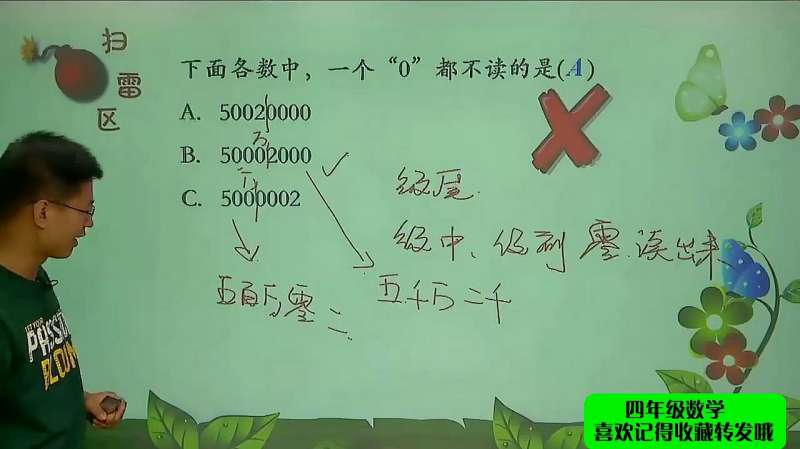 扫
雷
区
下面各数中，一个“0”都不读的是(A)
A. 50020000
B. 50002000
C. 5000002
万
级尾.
级中、级列 零.读出来
五百万零二
五千万二千
PASS
四年级数学
喜欢记得收藏转发哦